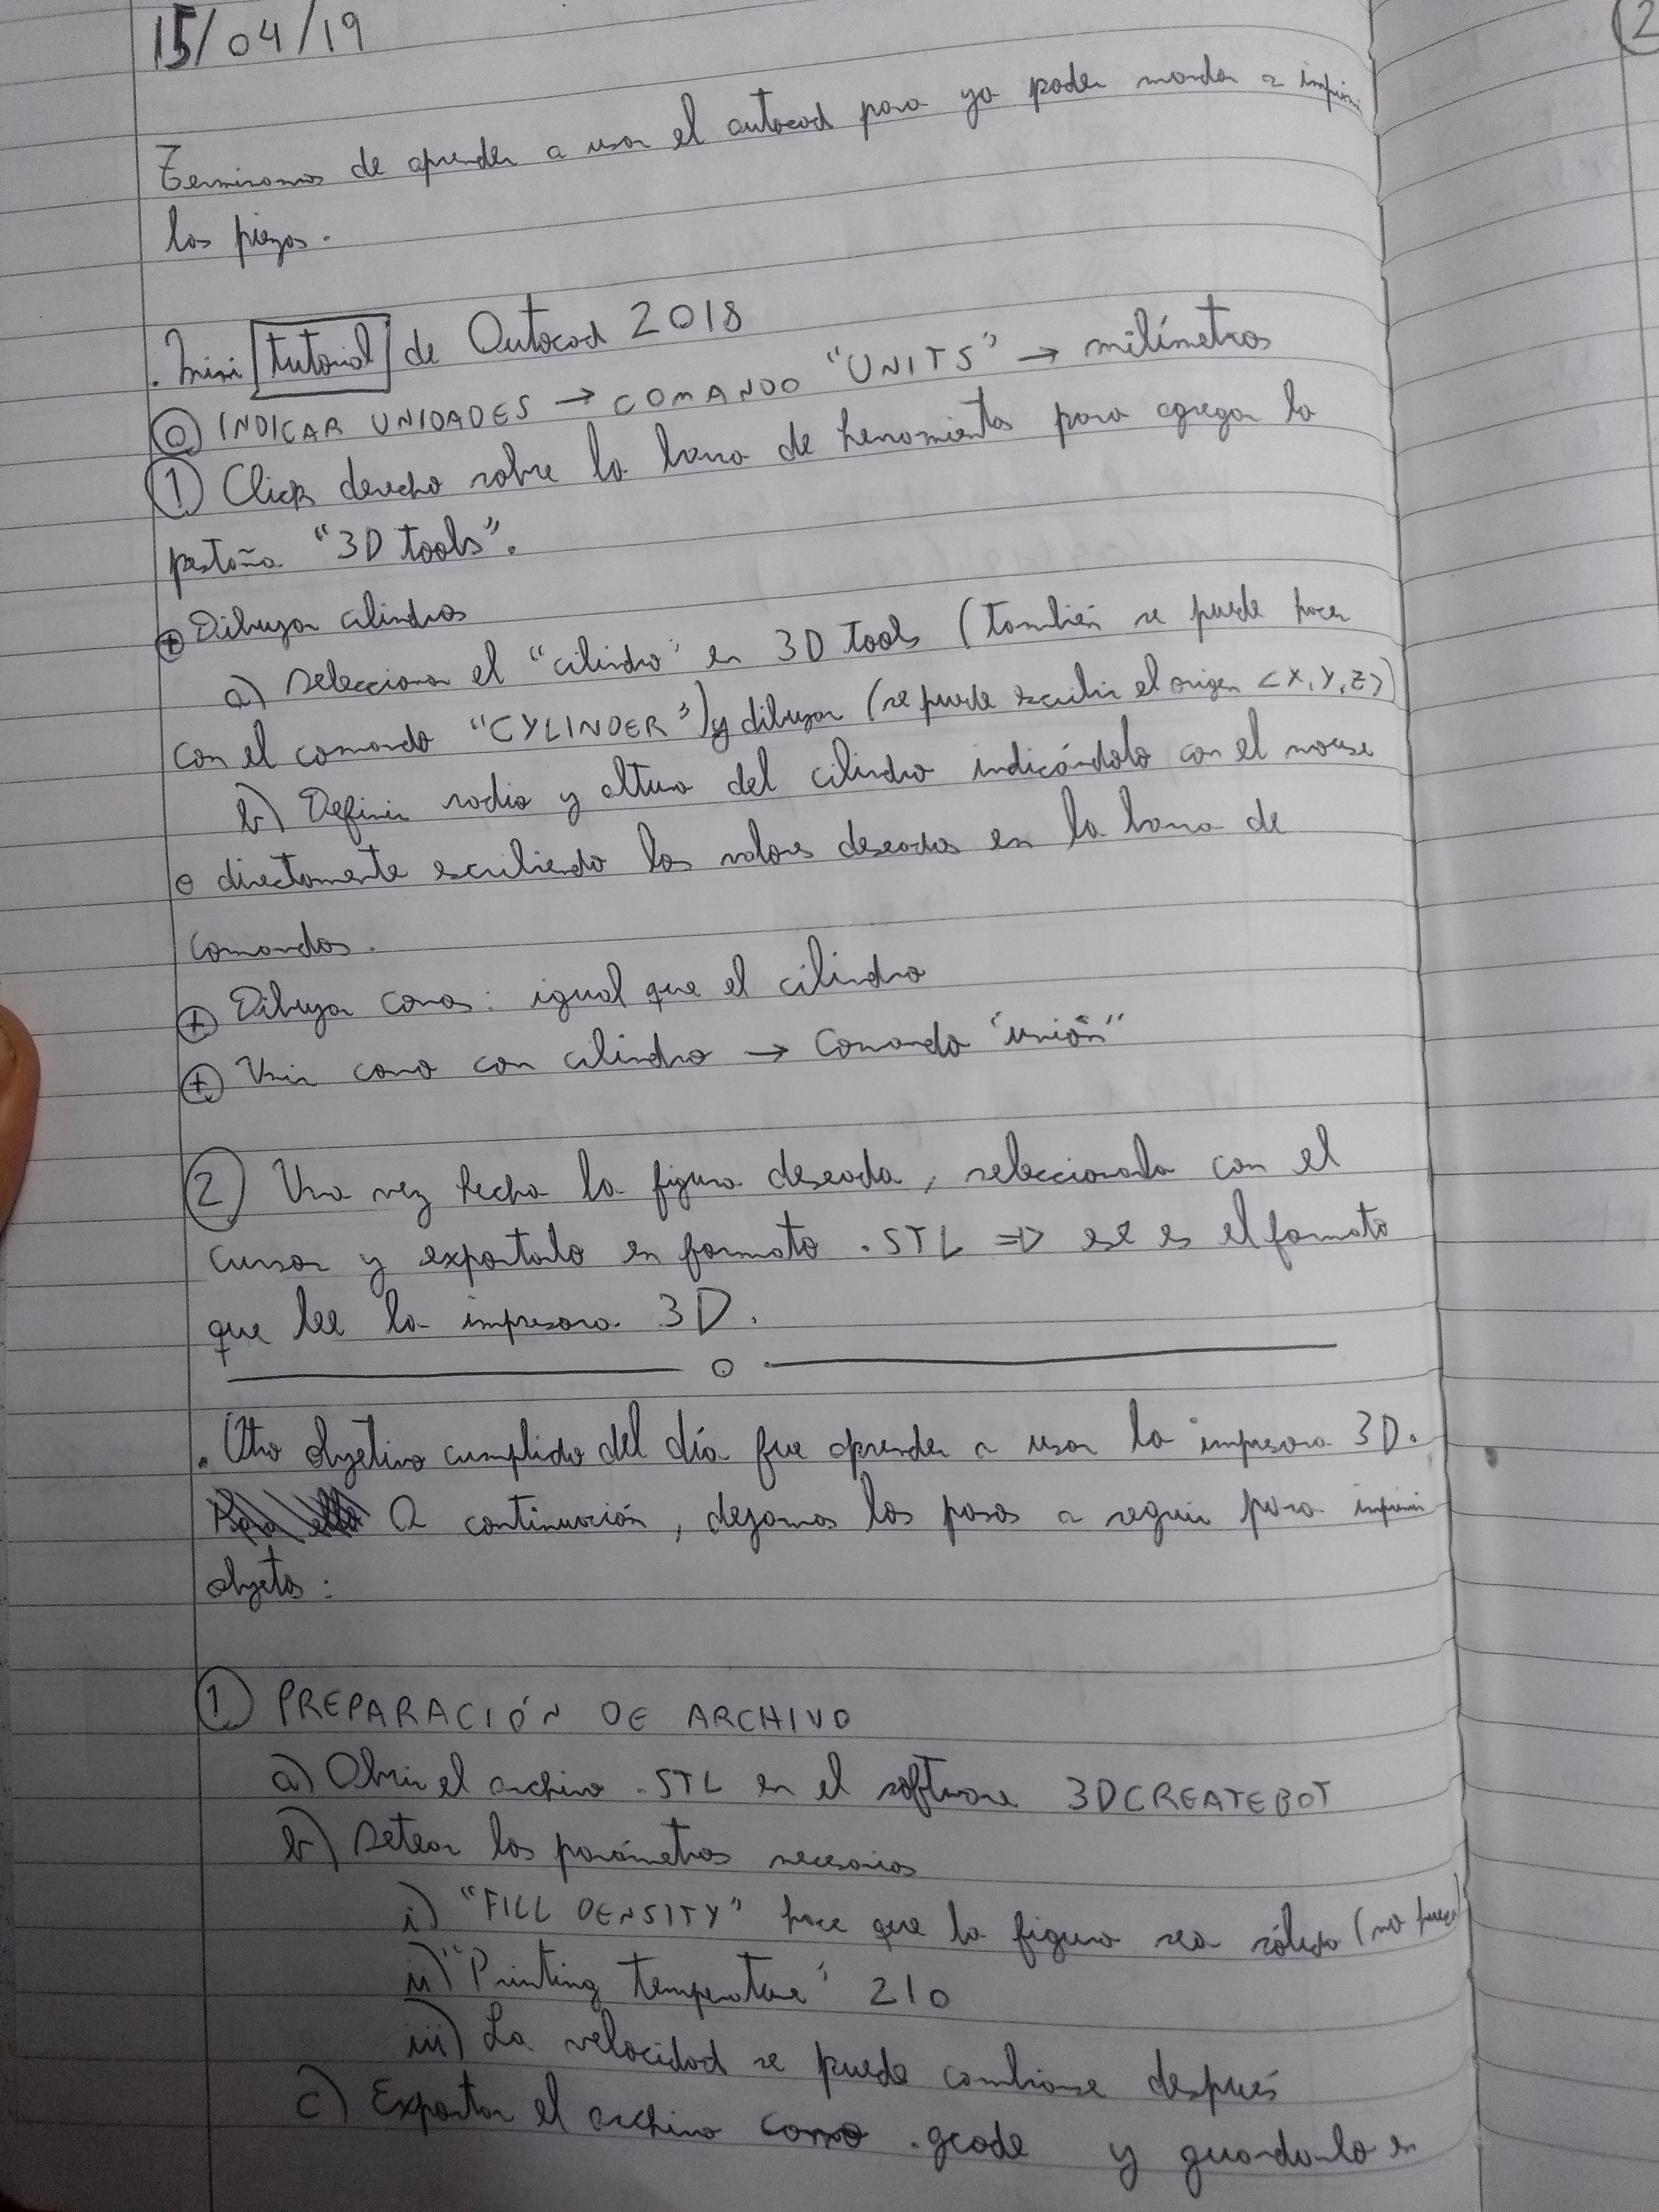 15/04/19
Terminamos de aprender a usar el autocad para ya poder mandar a imprimir
las piezas.
. Mini tutorial de Autocad 2018
0 INDICAR UNIDADES → COMANDO "UNITS" → milímetros
1 Click derecho sobre la barra de herramientas para agregar la
pestaña "3D tools".
+ Dibujar cilindros
a) Seleccionar el "cilindro" en 3D Tools (también se puede hacer
con el comando "CYLINDER") y dibujar (se puede escribir el origen <X,Y,Z>)
b) Definir radio y altura del cilindro indicándolo con el mouse
o directamente escribiendo los valores deseados en la barra de
comandos.
+ Dibujar conos: igual que el cilindro
+ Unir cono con cilindro → Comando "unión"
2 Una vez hecha la figura deseada, seleccionarla con el
cursor y exportarlo en formato .STL => ese es el formato
que lee la impresora 3D.
. Otro objetivo cumplido del día fue aprender a usar la impresora 3D.
Para ello A continuación, dejamos los pasos a seguir para imprimir
objetos:
1 PREPARACIÓN DE ARCHIVO
a) Abrir el archivo .STL en el software 3DCREATEBOT
b) Setear los parámetros necesarios
i) "FILL DENSITY" hace que la figura sea sólida (no hueca)
ii) "Printing temperature" 210
iii) La velocidad se puede cambiarse después
c) Exportar el archivo como .gcode y guardarlo en
2